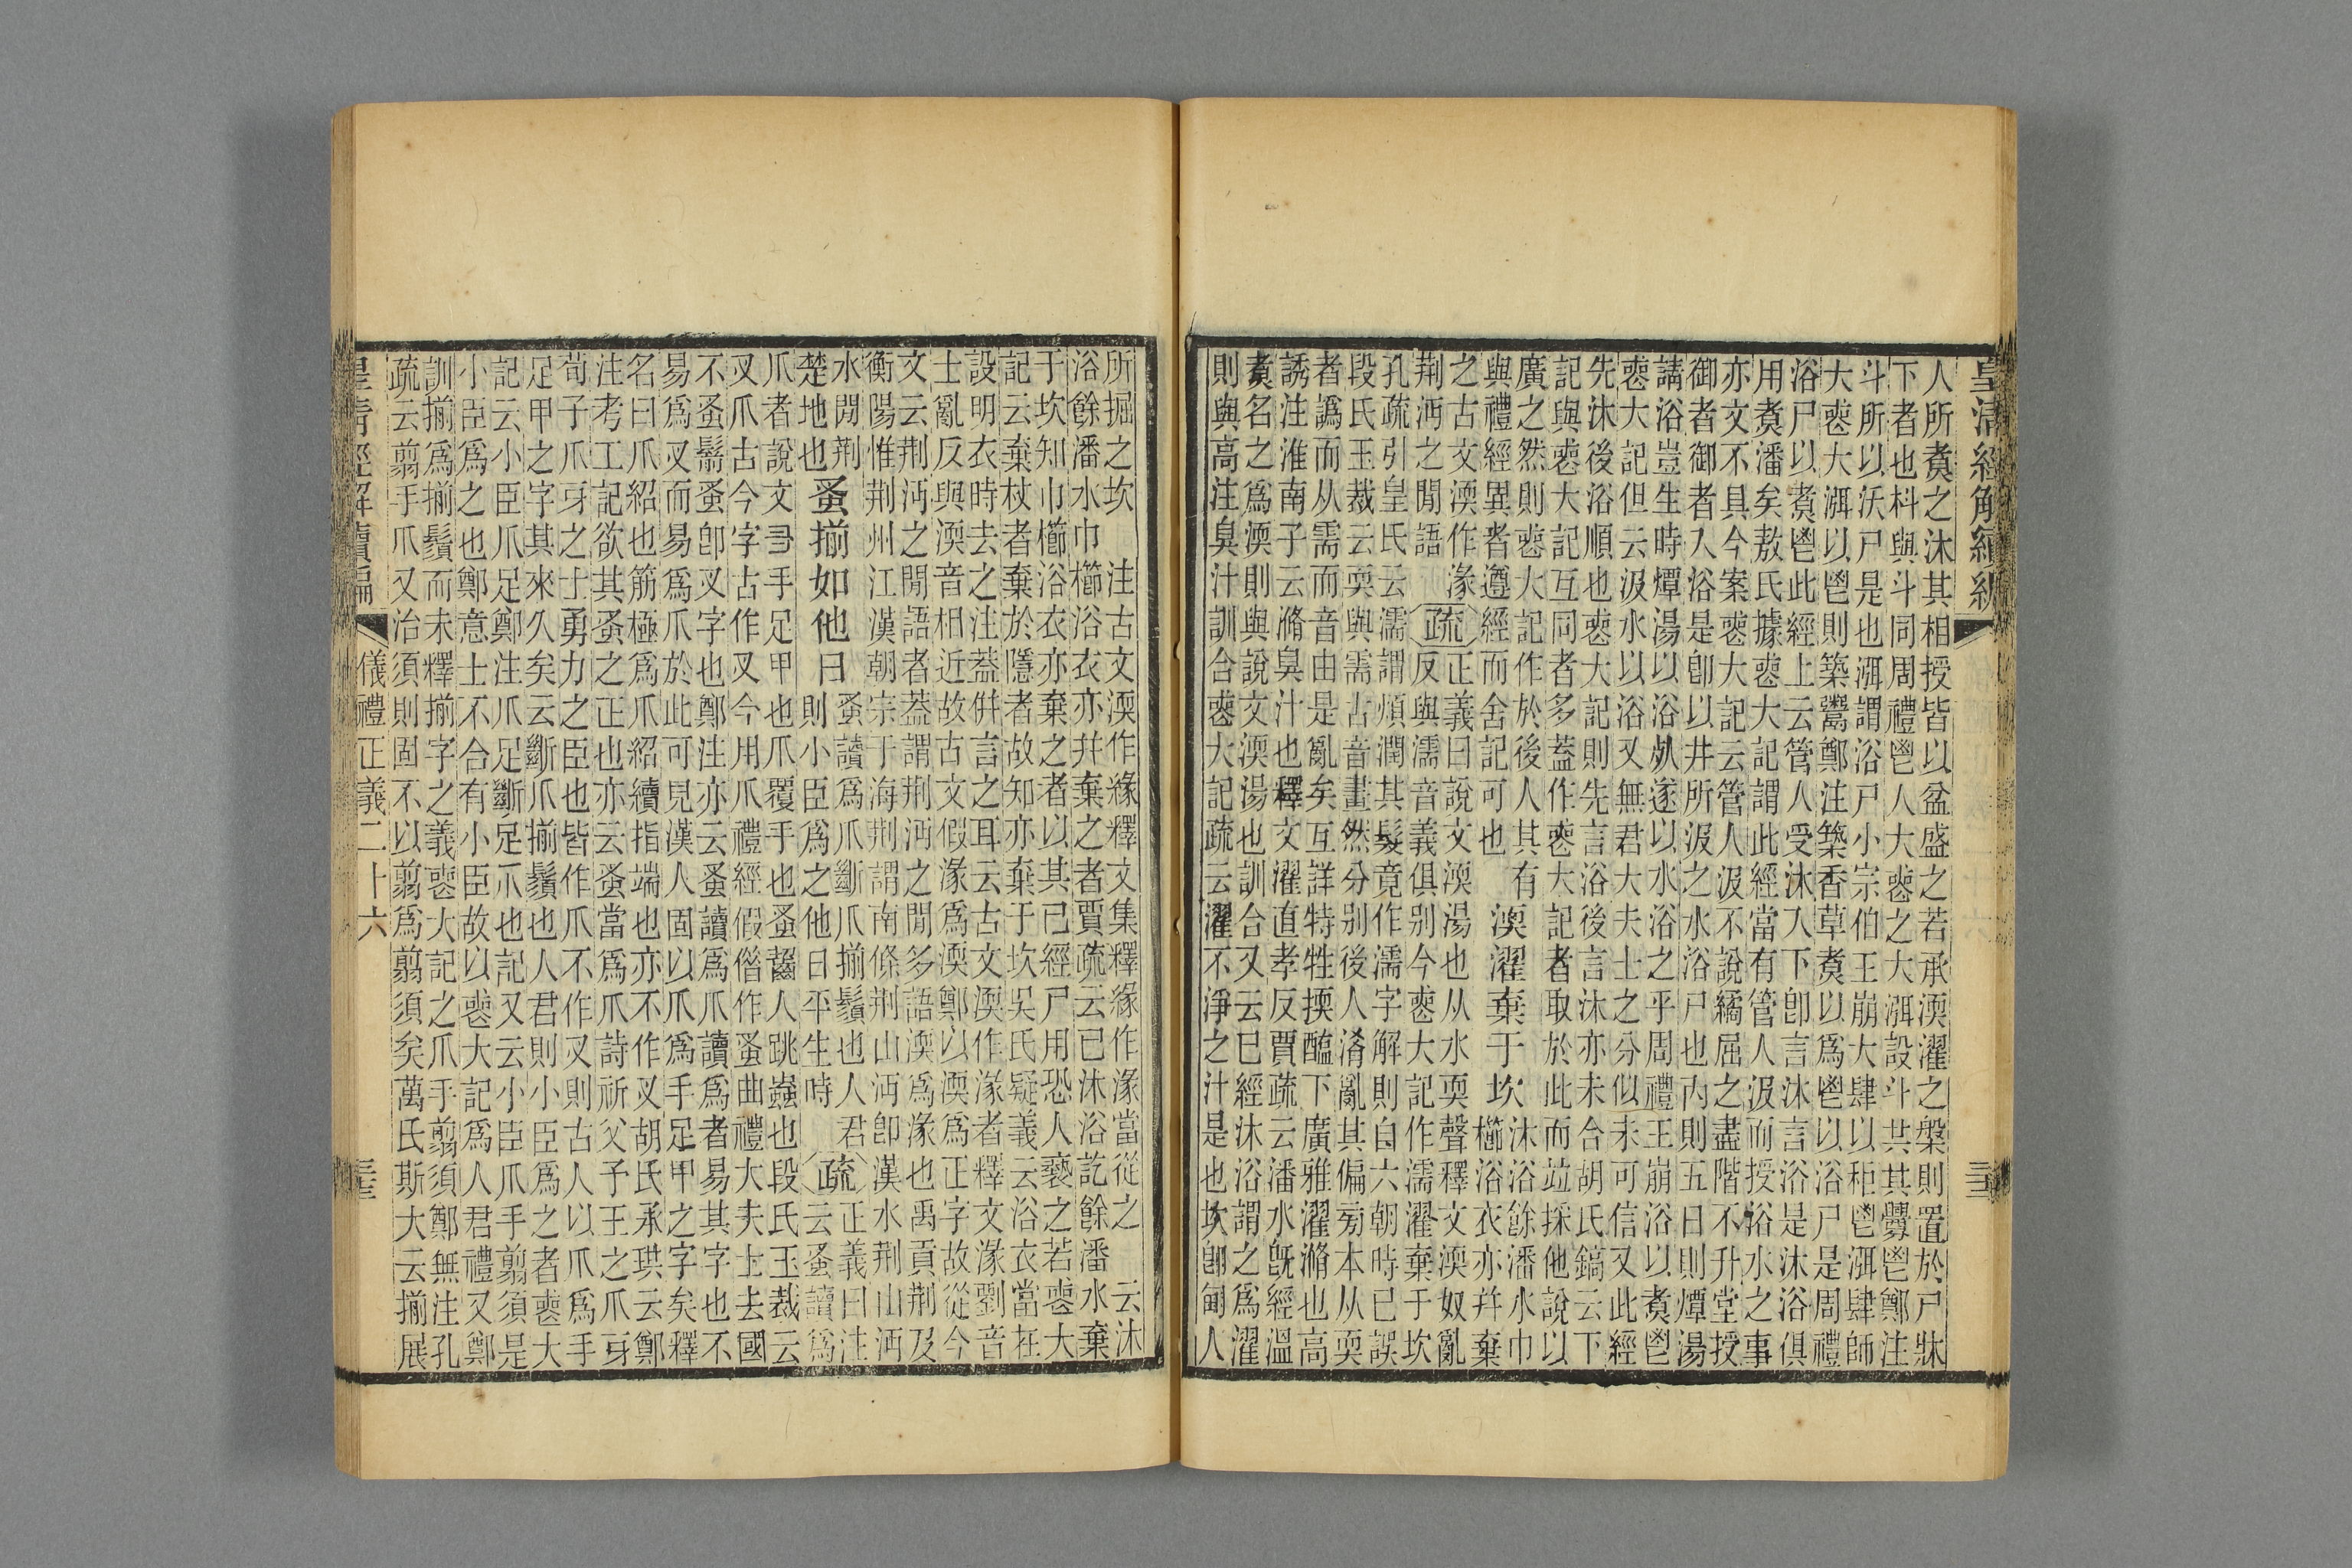 皇清經解續編
人所煑之沐其相授皆以盆盛之若承渜濯之槃則置於尸牀
下者也枓與斗同周禮鬯人大喪之大渳設斗共其釁鬯鄭注
斗所以沃尸是也渳謂浴尸小宗伯王崩大肆以秬鬯渳肆師
大喪大渳以鬯則築鬻鄭注築香草煑以爲鬯以浴尸是周禮
浴尸以煑鬯此經上云管人受沐入下卽言沐言浴是沐浴俱
用煑潘矣敖氏據喪大記謂此經當有管人汲而授浴水之事
亦文不具今案喪大記云管人汲不說繘屈之盡階不升堂授
御者御者入浴是卽以井所汲之水浴尸也內則五日則燂湯
請浴豈生時燂湯以浴死遂以水浴之乎周禮王崩浴以煑鬯
喪大記但云汲水以浴又無君大夫士之分似未可信又此經
先沐後浴順也喪大記則先言浴後言沐亦未合胡氏鎬云下
記與喪大記互同者多蓋作喪大記者取於此而竝採他說以
廣之然則喪大記作於後人其有
與禮經異者遵經而舍記可也
渜濯棄于坎
沐浴餘潘水巾
櫛浴衣亦幷棄
之古文渜作湪
荆沔之閒語
疏
正義曰說文渜湯也从水耎聲釋文渜奴亂
反與濡音義俱別今喪大記作濡濯棄于坎
孔疏引皇氏云濡謂煩潤其髮竟作濡字解則自六朝時已誤
段氏玉裁云耎與需古音畫然分別後人淆亂其偏旁本从耎
者譌而从需而音由是亂矣互詳特牲擩醢下廣雅濯滫也高
誘注淮南子云滫臭汁也釋文濯直孝反賈疏云潘水旣經溫
煑名之爲渜則與說文渜湯也訓合又云已經沐浴謂之爲濯
則與高注臭汁訓合喪大記疏云濯不淨之汁是也坎卽甸人
所掘之坎 注古文渜作緣釋文集釋緣作湪當從之 云沐
浴餘潘水巾櫛浴衣亦幷棄之者賈疏云已沐浴訖餘潘水棄
于坎知巾櫛浴衣亦棄之者以其已經尸用恐人褻之若喪大
記云棄杖者棄於隱者故知亦棄于坎吳氏疑義云浴衣當在
設明衣時去之注蓋倂言之耳云古文渜作湪者釋文湪劉音
士亂反與渜音相近故古文假湪爲渜鄭以渜爲正字故從今
文云荆沔之閒語者蓋謂荆沔之閒多語渜爲湪也禹貢荆及
衡陽惟荆州江漢朝宗于海荆謂南條荆山沔卽漢水荆山沔
水閒荆
楚地也
蚤揃如他日
蚤讀爲爪斷爪揃鬚也人君
則小臣爲之他日平生時
疏
正義曰注
云蚤讀爲
爪者說文叉手足甲也爪覆手也蚤齧人跳蟲也段氏玉裁云
叉爪古今字古作叉今用爪禮經假偕作蚤曲禮大夫士去國
不蚤鬋蚤卽叉字也鄭注亦云蚤讀爲爪讀爲者易其字也不
易爲叉而易爲爪於此可見漢人固以爪爲手足甲之字矣釋
名曰爪紹也筋極爲爪紹續指端也亦不作叉胡氏承珙云鄭
注考工記欲其蚤之正也亦云蚤當爲爪詩祈父予王之爪牙
荀子爪牙之士勇力之臣也皆作爪不作叉則古人以爪爲手
足甲之字其來久矣云斷爪揃鬚也人君則小臣爲之者喪大
記云小臣爪足鄭注爪足斷足爪也記又云小臣爪手翦須是
小臣爲之也鄭意士不合有小臣故以喪大記爲人君禮又鄭
訓揃爲揃鬚而未釋揃字之義喪大記之爪手翦須鄭無注孔
疏云翦手爪又治須則固不以翦爲翦須矣萬氏斯大云揃展
皇清經解續編 儀禮正義二十六